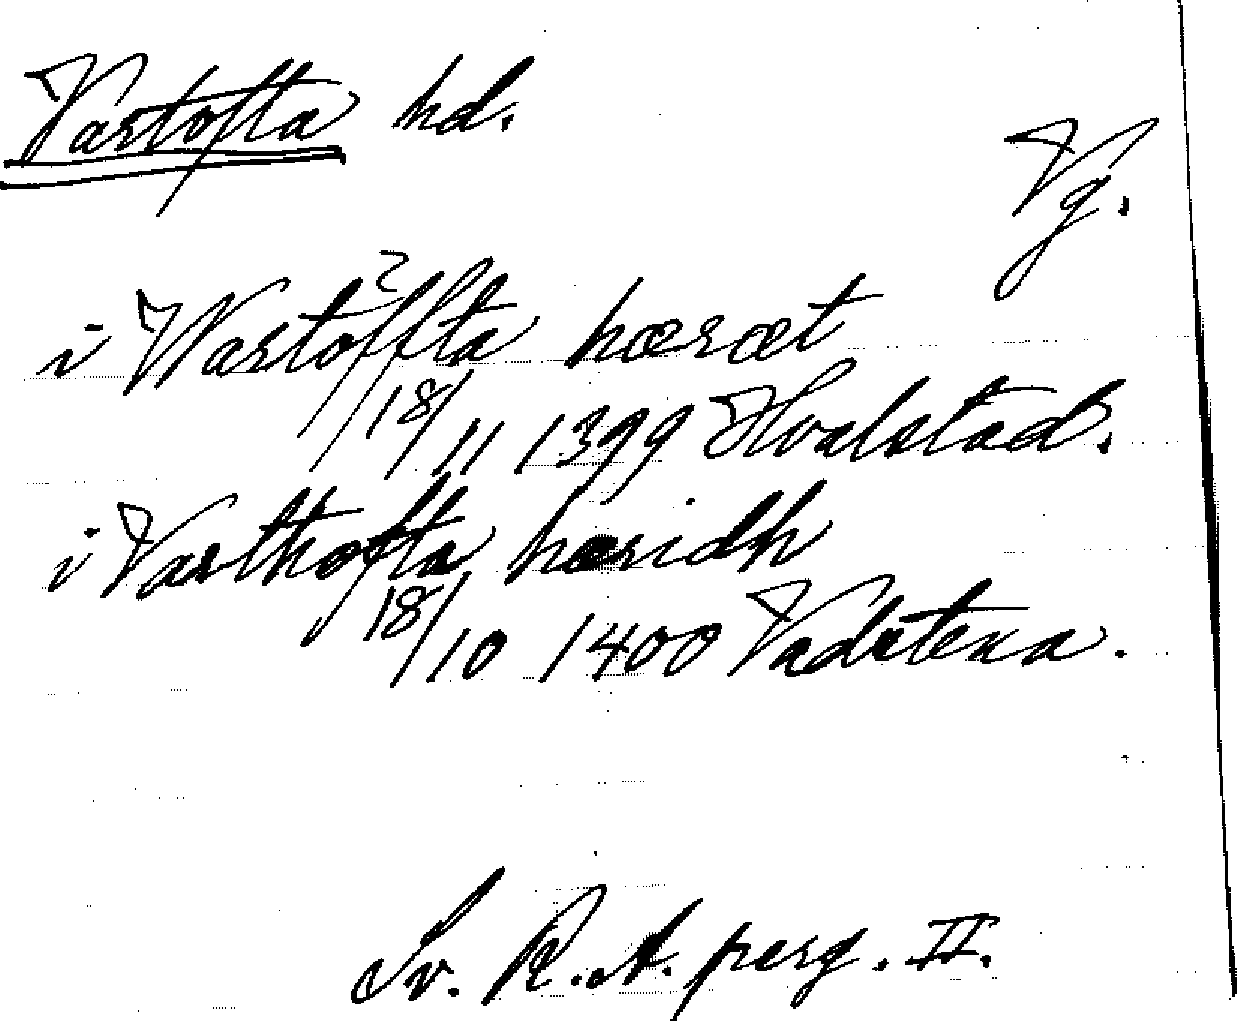 Vartofta hd.
Vg.
i Wartoffta hæræt
18/11 1399 Hvalstad.
i Varthofta hæridh
18/10 1400 Vadstena.
Sv. R.A. perg. II.